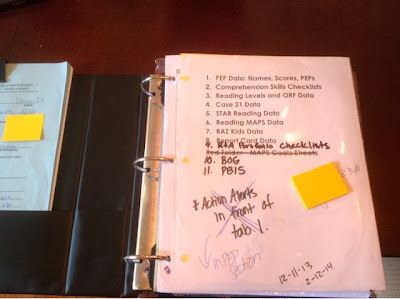 1. PEP Data: Names, Scores, PEPs
2. Comprehension Skills Checklists
3. Reading Levels and ORF Data
4. Case 21 Data
5. STAR Reading Data
6. Reading MAPS Data
7. RAZ Kids Data
8. Report Card Data
9. K+A Portfolio Checklists
Red Folder - MAPS Goals Sheets
10. BOG
11. PBIS
* Action Alerts
in front of
tab 1.
✓ in PEP
section
12-11-13
2-12-14